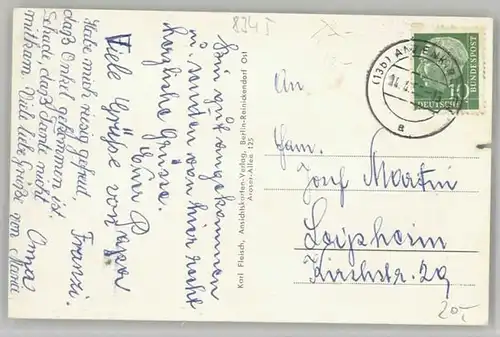 8345
Sind gut angekommen
u. senden von hier recht
herzliche Grüsse.
Viele Grüße von Papa
Habe mich riesig gefreut
daß Onkel gekommen ist.
Schade, daß Tante nicht
mitkam. Viele liebe Grüße von Maria
Franzi.
Oma
Karl Fleisch, Ansichtskarten-Verlag, Berlin-Reinickendorf Ost
Aroser-Allee 125
(13b)
a
DEUTSCHE
BUNDESPOST
10
An
Fam.
Josef Martin
Leipheim
Kirchstr. 29
20,-